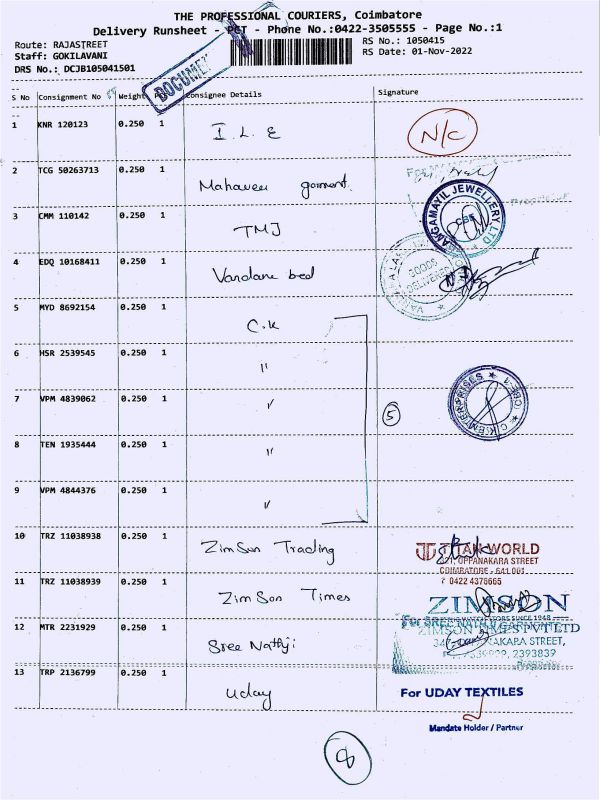 THE PROFESSIONAL COURIERS, Coimbatore
Delivery Runsheet - PCT - Phone No.:0422-3505555 - Page No.:1
Route: RAJASTREET
RS No.: 1050415
Staff: GOKILAVANI
RS Date: 01-Nov-2022
DRS No.: DCJB105041501
DOCUMENT
S No Consignment No Weight Pcs Consignee Details Signature
1 KNR 120123 0.250 1 I. L. E N/C
2 TCG 50263713 0.250 1 Mahaveer garment
3 CMM 110142 0.250 1 TMJ
ANGAMAYIL JEWELLERY LTD
CBE
4 EDQ 10168411 0.250 1 Vandana bed
GOODS
DELIVERED
5 MYD 8692154 0.250 1 C.K
6 HSR 2539545 0.250 1 "
7 VPM 4839062 0.250 1 "
C K ENTERPRISES ★ CBE-1 ★
5
8 TEN 1935444 0.250 1 "
9 VPM 4844376 0.250 1 "
10 TRZ 11038938 0.250 1 Zimson Trading
TITAN WORLD
OPPANAKARA STREET
COIMBATORE - 641 001
T 0422 4376665
11 TRZ 11038939 0.250 1 Zimson Times
ZIMSON
WATCH STORES SINCE 1948
12 MTR 2231929 0.250 1 Sree Nathji
For SREE NATHJI GARMENTS
ZIMSON TIMES PVT LTD
STREET,
2393839
13 TRP 2136799 0.250 1 Uday
For UDAY TEXTILES
Mandate Holder / Partner
8